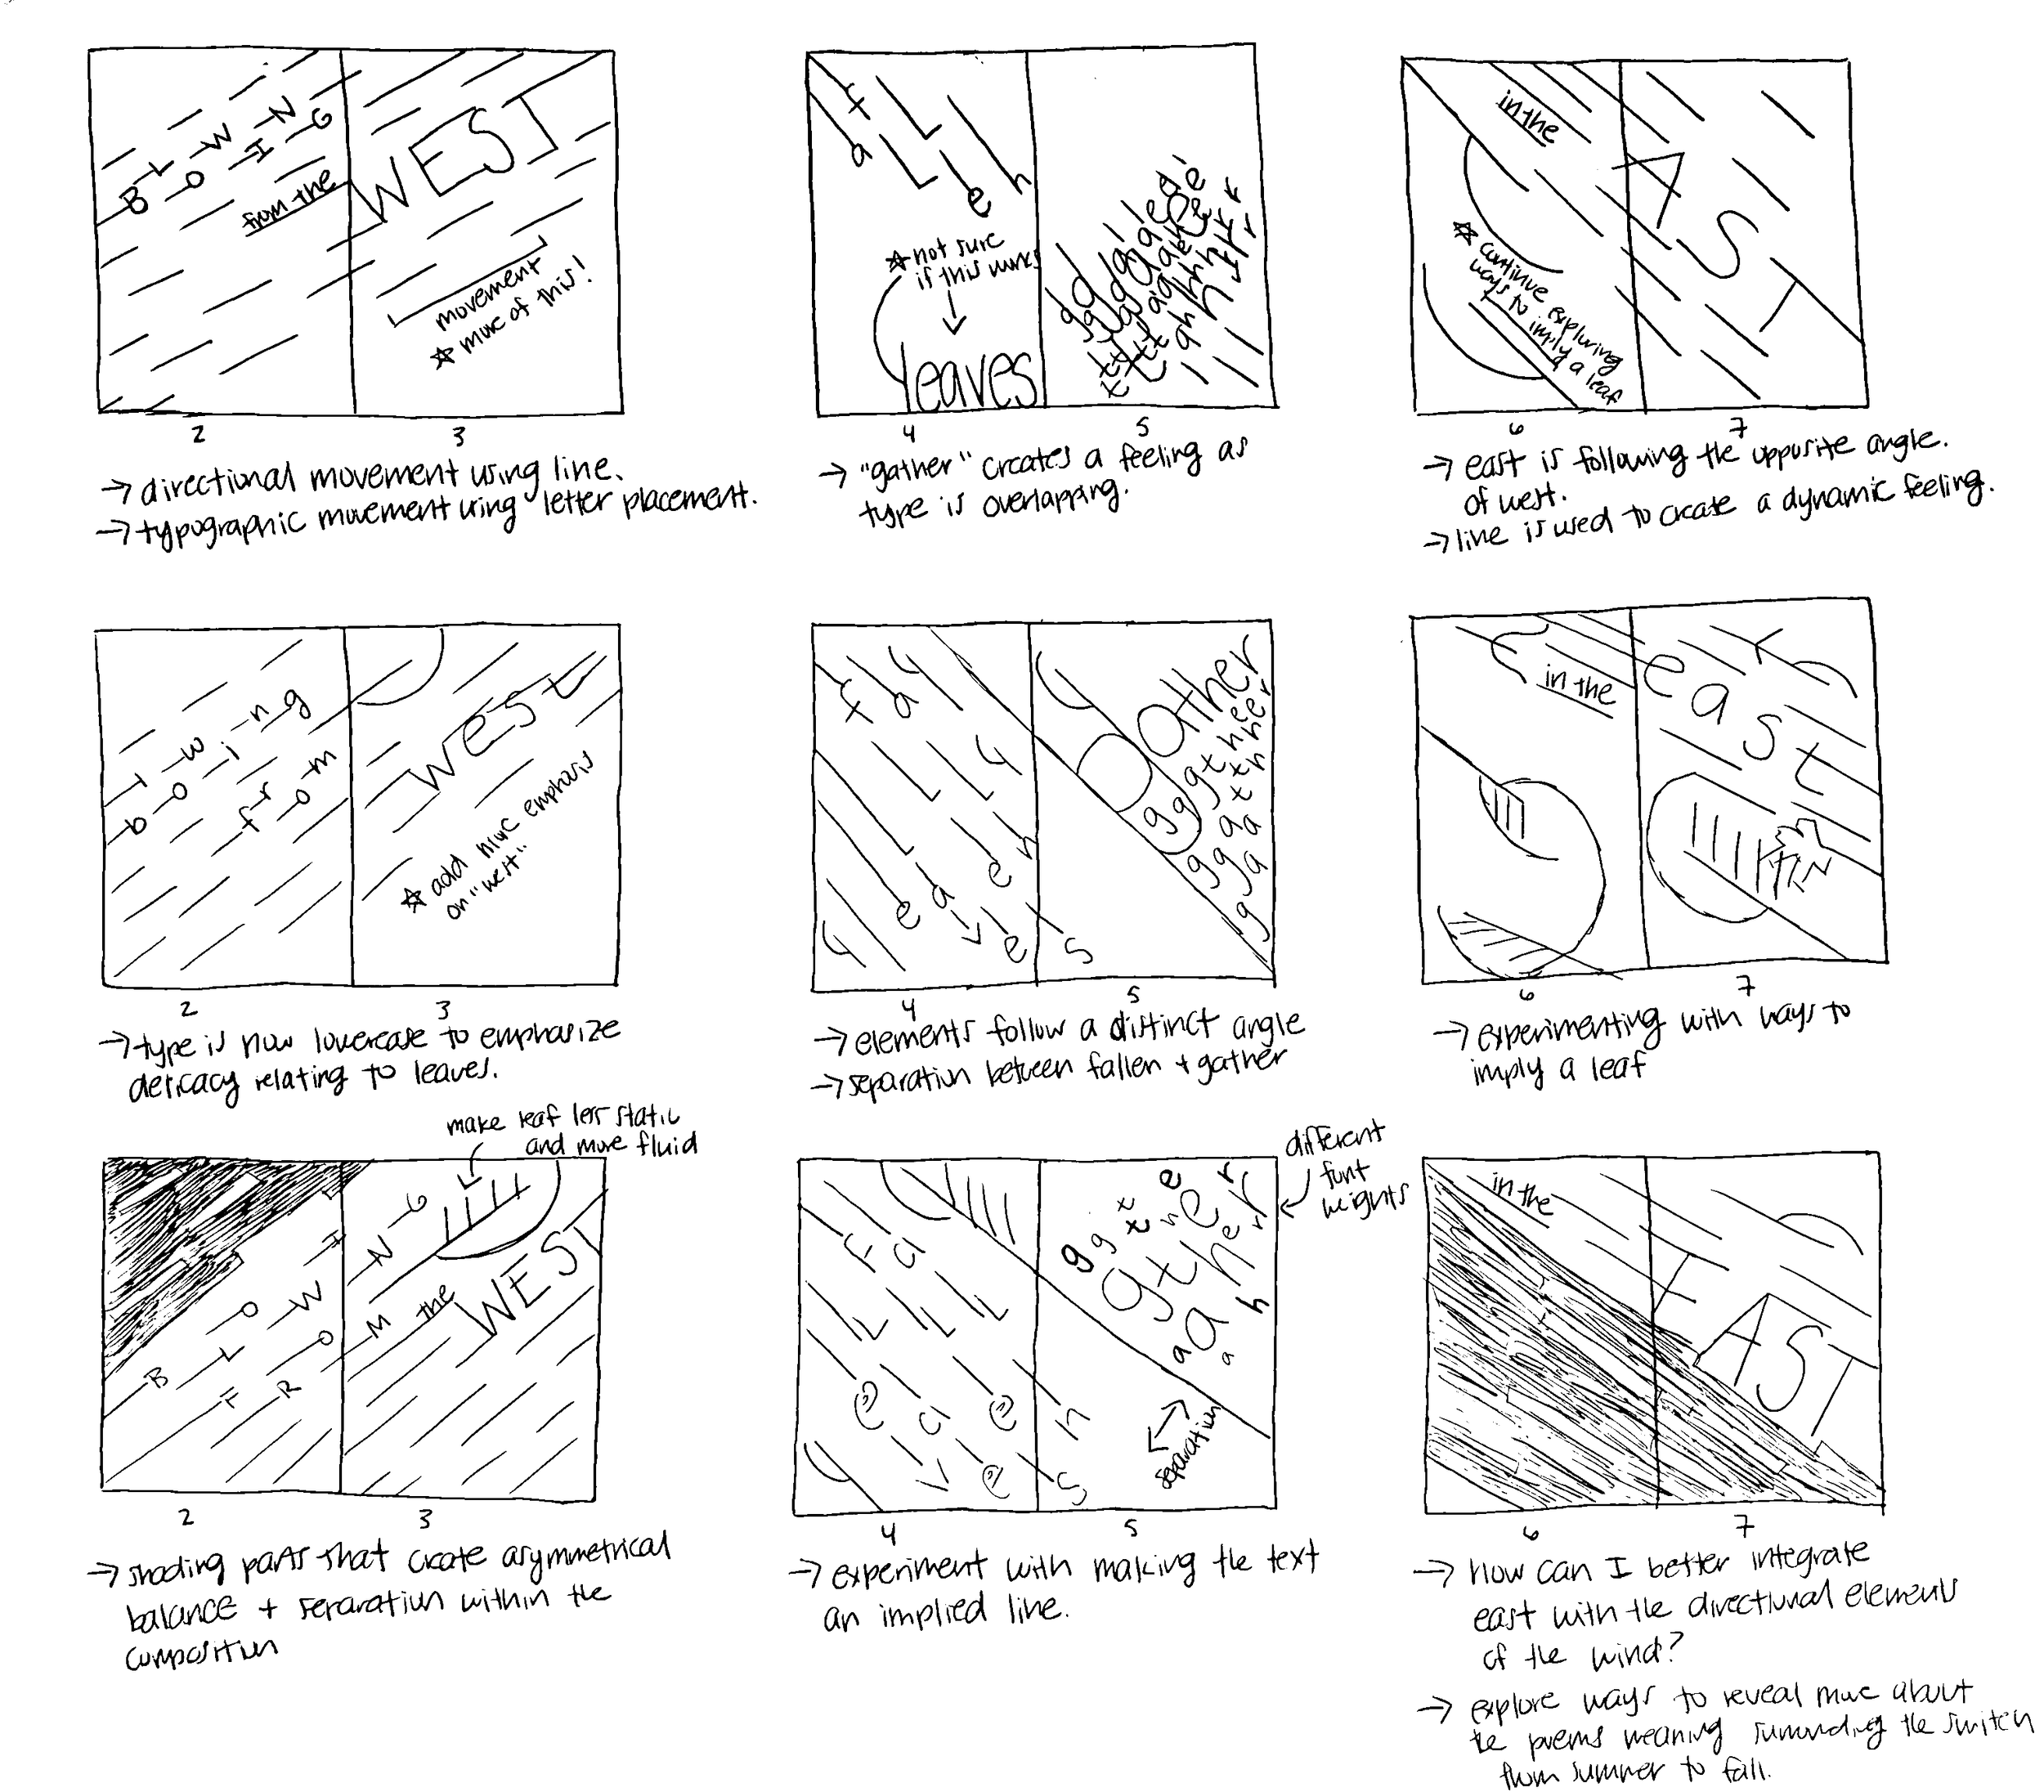 BLOWING
from the
WEST
movement
☆ more of this!
2
3
→ directional movement using line.
→ typographic movement using letter placement.
faLLeh
☆ not sure
if this works
leaves
4
5
→ "gather" creates a feeling as
type is overlapping.
in the
AST
☆ continue exploring
ways to imply a leaf
6
7
→ east is following the opposite angle.
of west.
→ line is used to create a dynamic feeling.
blowing
from
west
☆ add more emphasis
on "west".
2
3
→ type is now lowercase to emphasize
delicacy relating to leaves.
faLLeh
leaves
gather
4
5
→ elements follow a distinct angle
→ separation between fallen + gather
in the
east
6
7
→ experimenting with ways to
imply a leaf
make leaf less static
and more fluid
BLOWING
FROM the
WEST
2
3
→ shading parts that create asymmetrical
balance + separation within the
composition
faLLeh
leaves
gather
different
font
weights
separation
4
5
→ experiment with making the text
an implied line.
in the
EAST
6
7
→ How can I better integrate
east with the directional elements
of the wind?
→ explore ways to reveal more about
the poems meaning surrounding the switch
from summer to fall.